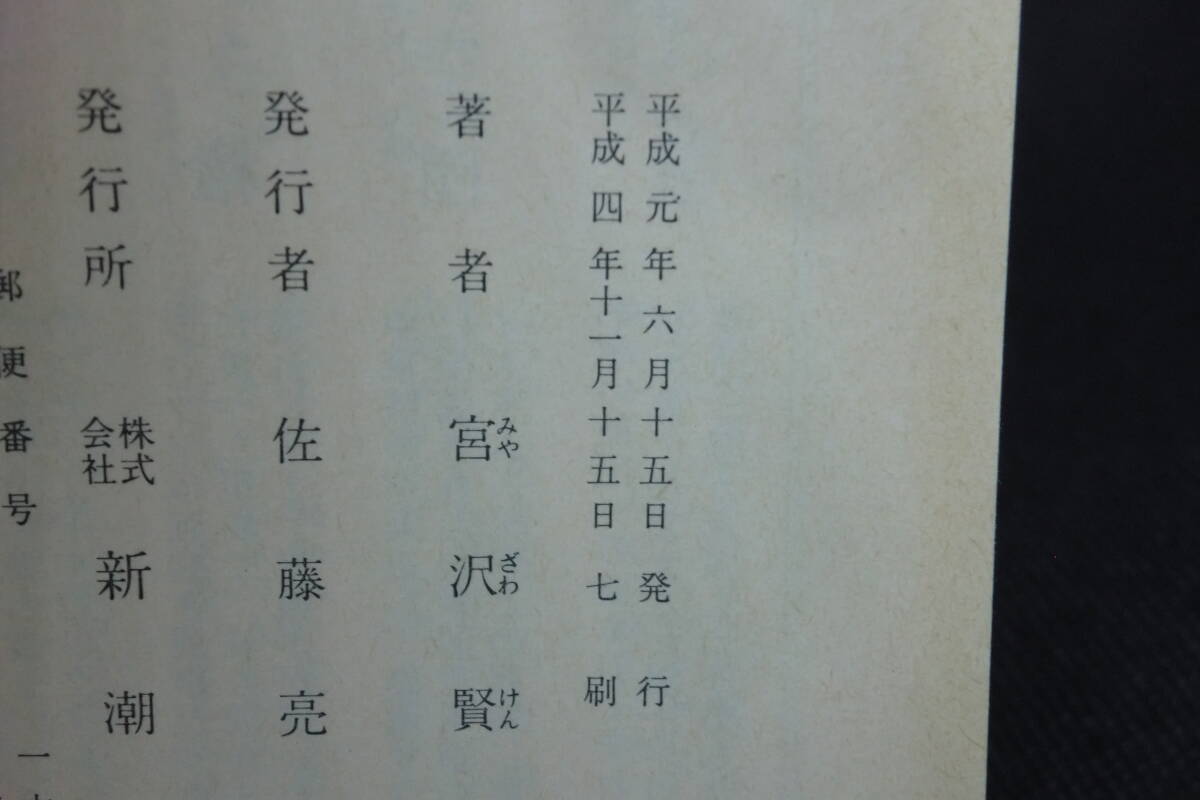 平成元年六月十五日発行
平成四年十一月十五日七刷
著者 宮沢賢
みやざわけん
発行者 佐藤亮
発行所 株式会社 新潮
郵便番号 一